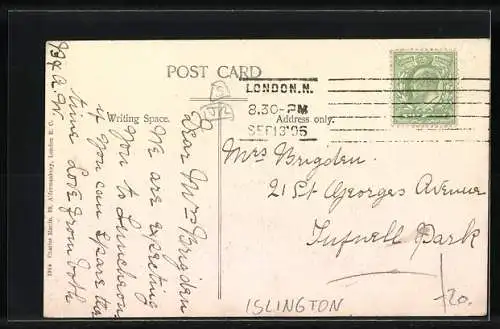 POST CARD
Writing Space.
Address only.
LONDON.N.
8.30-PM
SEP 13 05
Dear Mrs Brigden
We are expecting
you to Luncheon
if you can spare the
time Love from both
Mrs Brigden.
21 St Georges Avenue
Tufnell Park
ISLINGTON
-20.
Charles Martin, 39, Aldermanbury, London E.C.